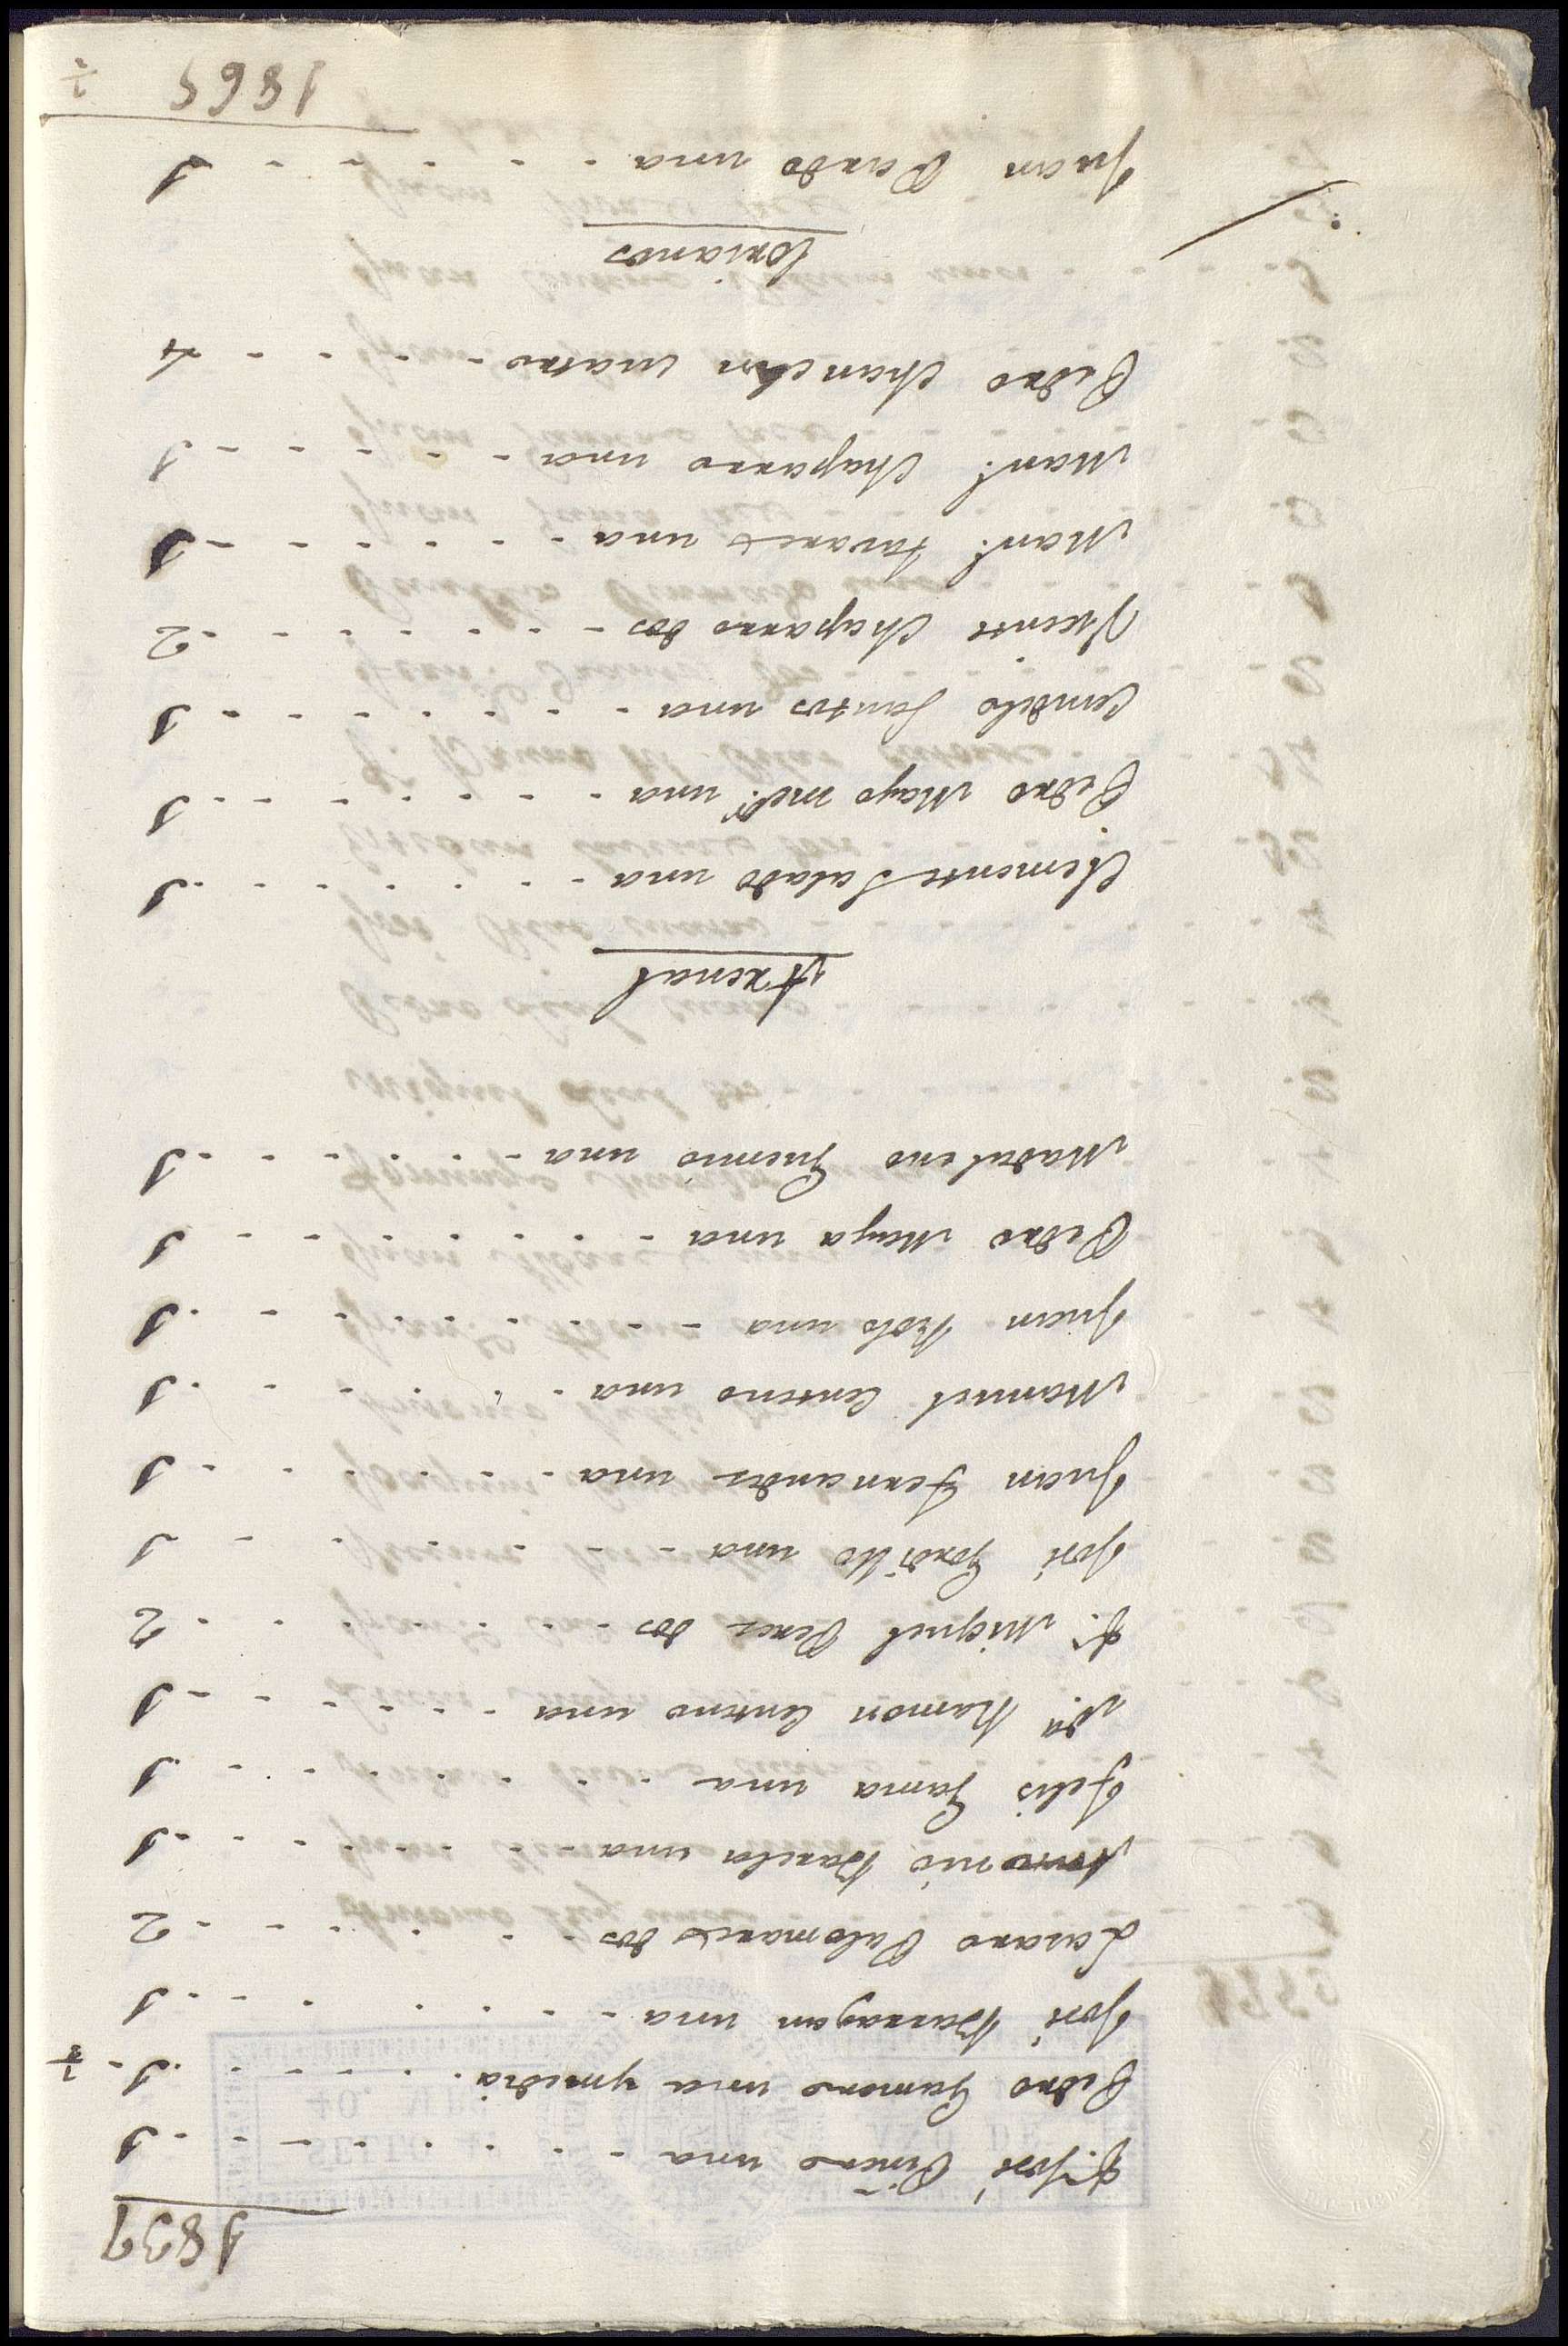 1837
Dn José Piñero una - - - - 1
Pedro Gamero una y media - - - - 1 - 1/2
José Barragan una - - - - 1
Lasaro Palomares dos - - - - 2
Antonio Barela una - - - - 1
Felis Gama una - - - - 1
Dn Ramon Centeno una - - - - 1
Dn Miguel Perez dos - - - - 2
José Gordillo una - - - - 1
Juan Fernandez una - - - - 1
Manuel Centeno una - - - - 1
Juan Rolo una - - - - 1
Pedro Maya una - - - - 1
Madaleno una - - - - 1
Arenal
Clemente Salado una - - - - 1
Pedro Mayo una - - - - 1
Candilo Santos una - - - - 1
Vicente Chaparro dos - - - - 2
Manl. Tavares una - - - - 1
Manl. Chaparro una - - - - 1
Pedro cuatro - - - - 4
Corianos
Juan Pardo una - - - - 1
1865 1/2